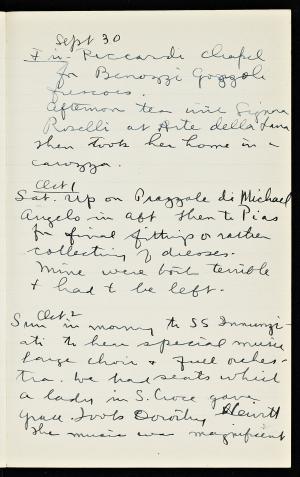 Sept 30
Fri - Riccardi chapel
for Benozzi Gozzoli
frescoes.
afternoon tea with Signora
Roselli at Arte della Lana
then took her home in a
carozza.
Oct 1
Sat. Up on Piazzale di Michael
Angelo in aft then to Pias
for final fittings or rather
collecting of dresses.
Mine were both terrible
& had to be left.
Oct. 2
Sun in morning to SS Annunzi-
ati to hear special music
large choir & full orches-
tra. We had seats which
a lady in S. Croce gave
Grace. Took Dorothy Hewitt
The music was magnificent